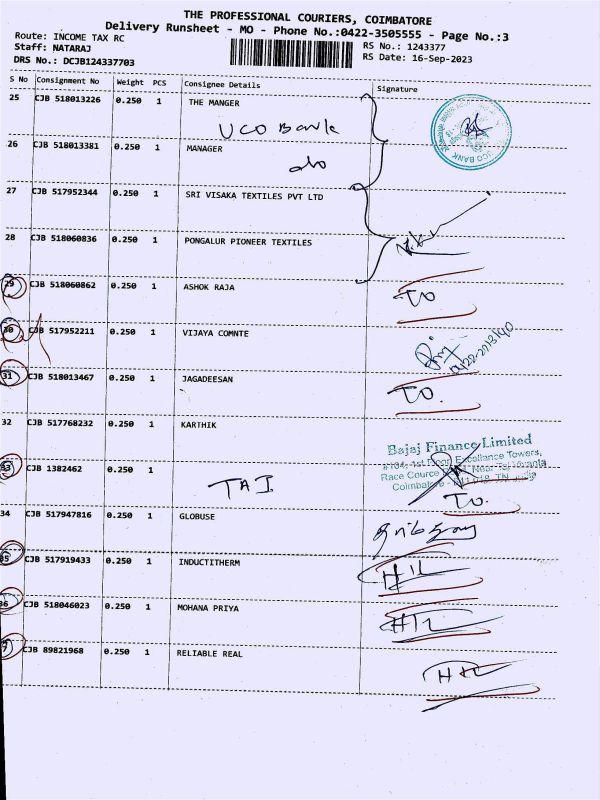 THE PROFESSIONAL COURIERS, COIMBATORE
Delivery Runsheet - MO - Phone No.:0422-3505555 - Page No.:3
Route: INCOME TAX RC
RS No.: 1243377
Staff: NATARAJ
RS Date: 16-Sep-2023
DRS No.: DCJB124337703
S No Consignment No Weight PCS Consignee Details Signature
25 CJB 518013226 0.250 1 THE MANGER
UCO Bank
26 CJB 518013381 0.250 1 MANAGER
UCO BANK
27 CJB 517952344 0.250 1 SRI VISAKA TEXTILES PVT LTD
28 CJB 518060836 0.250 1 PONGALUR PIONEER TEXTILES
29 CJB 518060862 0.250 1 ASHOK RAJA
TO
30 CJB 517952211 0.250 1 VIJAYA COMNTE
31 CJB 518013467 0.250 1 JAGADEESAN
TO.
32 CJB 517768232 0.250 1 KARTHIK
Bajaj Finance Limited
1st Floor Excellance Towers,
Race Cource
33 CJB 1382462 0.250 1
Coimbatore
TAJ
TO.
34 CJB 517947816 0.250 1 GLOBUSE
35 CJB 517919433 0.250 1 INDUCTITHERM
36 CJB 518046023 0.250 1 MOHANA PRIYA
7 CJB 89821968 0.250 1 RELIABLE REAL